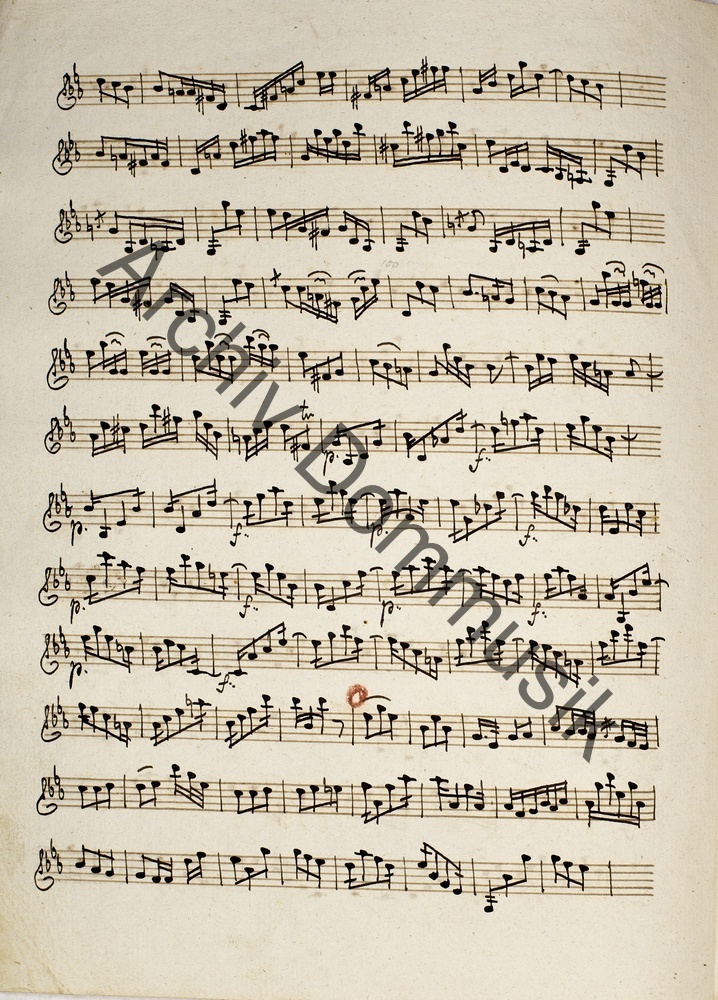 100
tr
p. f:
p. f: p. f:
p. f: p. f:
p. f:
Archiv Dommusik